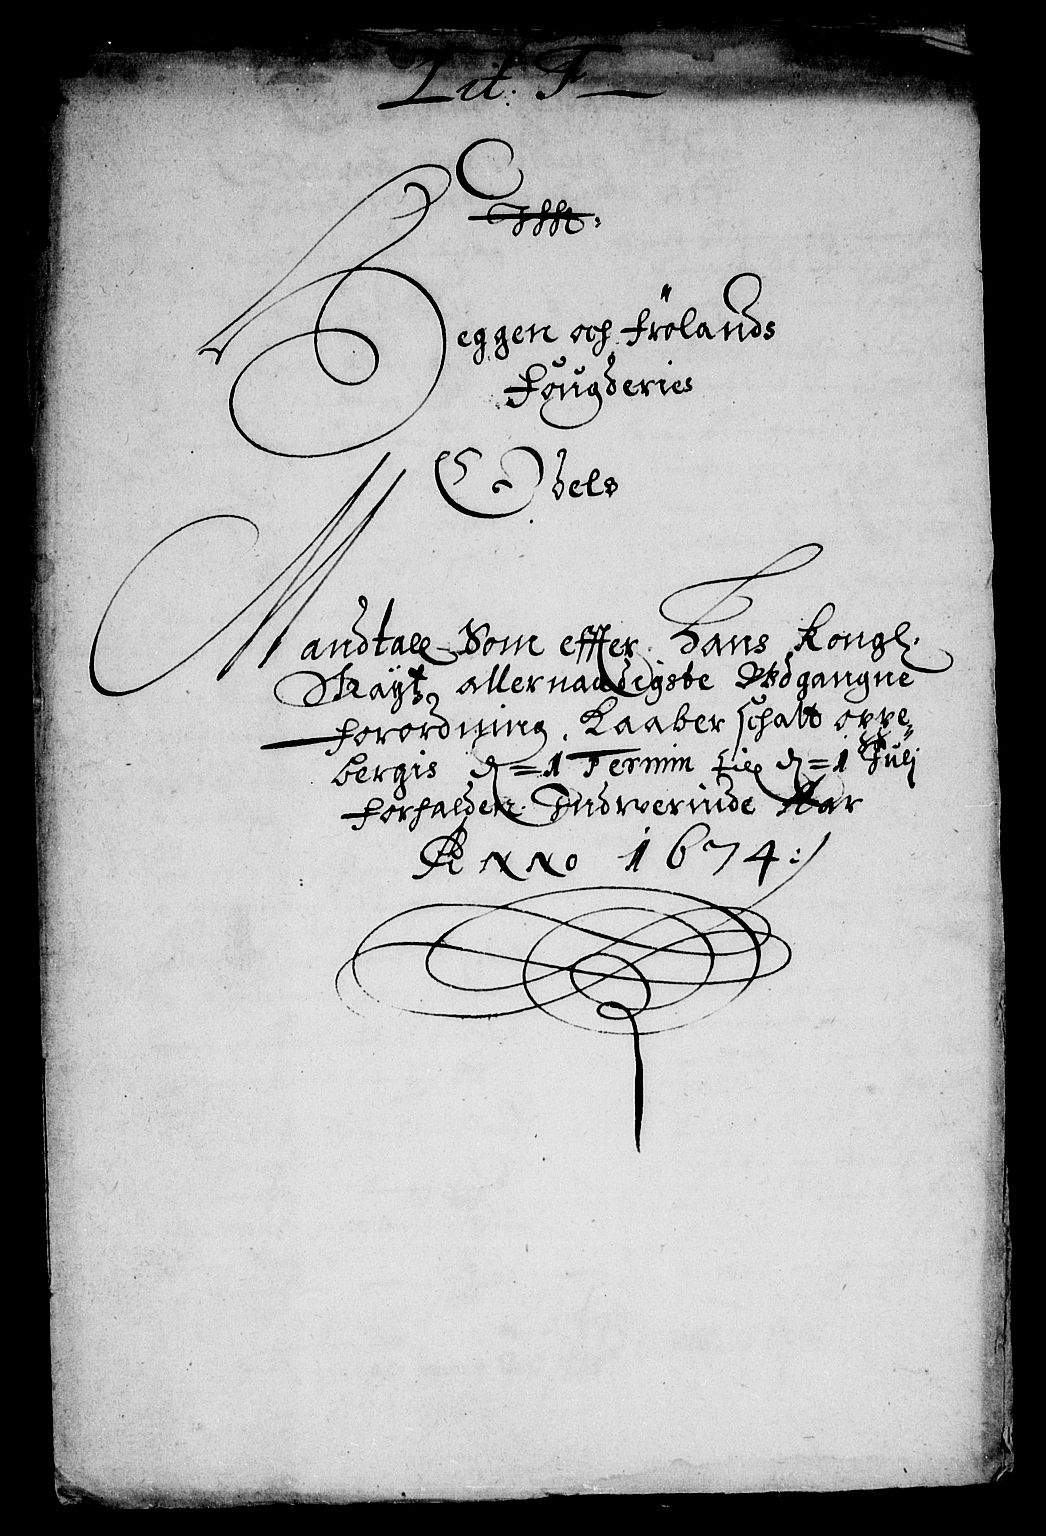 Lit: F
Heggen och Frölands
Fougderies
Odels
Mandtall Som effter Hans Kongl:
Mayt: allernaadigste Vdgangne
forordning, Kaaber schatt oppe„
bergis d=1 Termin till d=1 Julj
forfalden Indverinde Aar
Anno 1674: